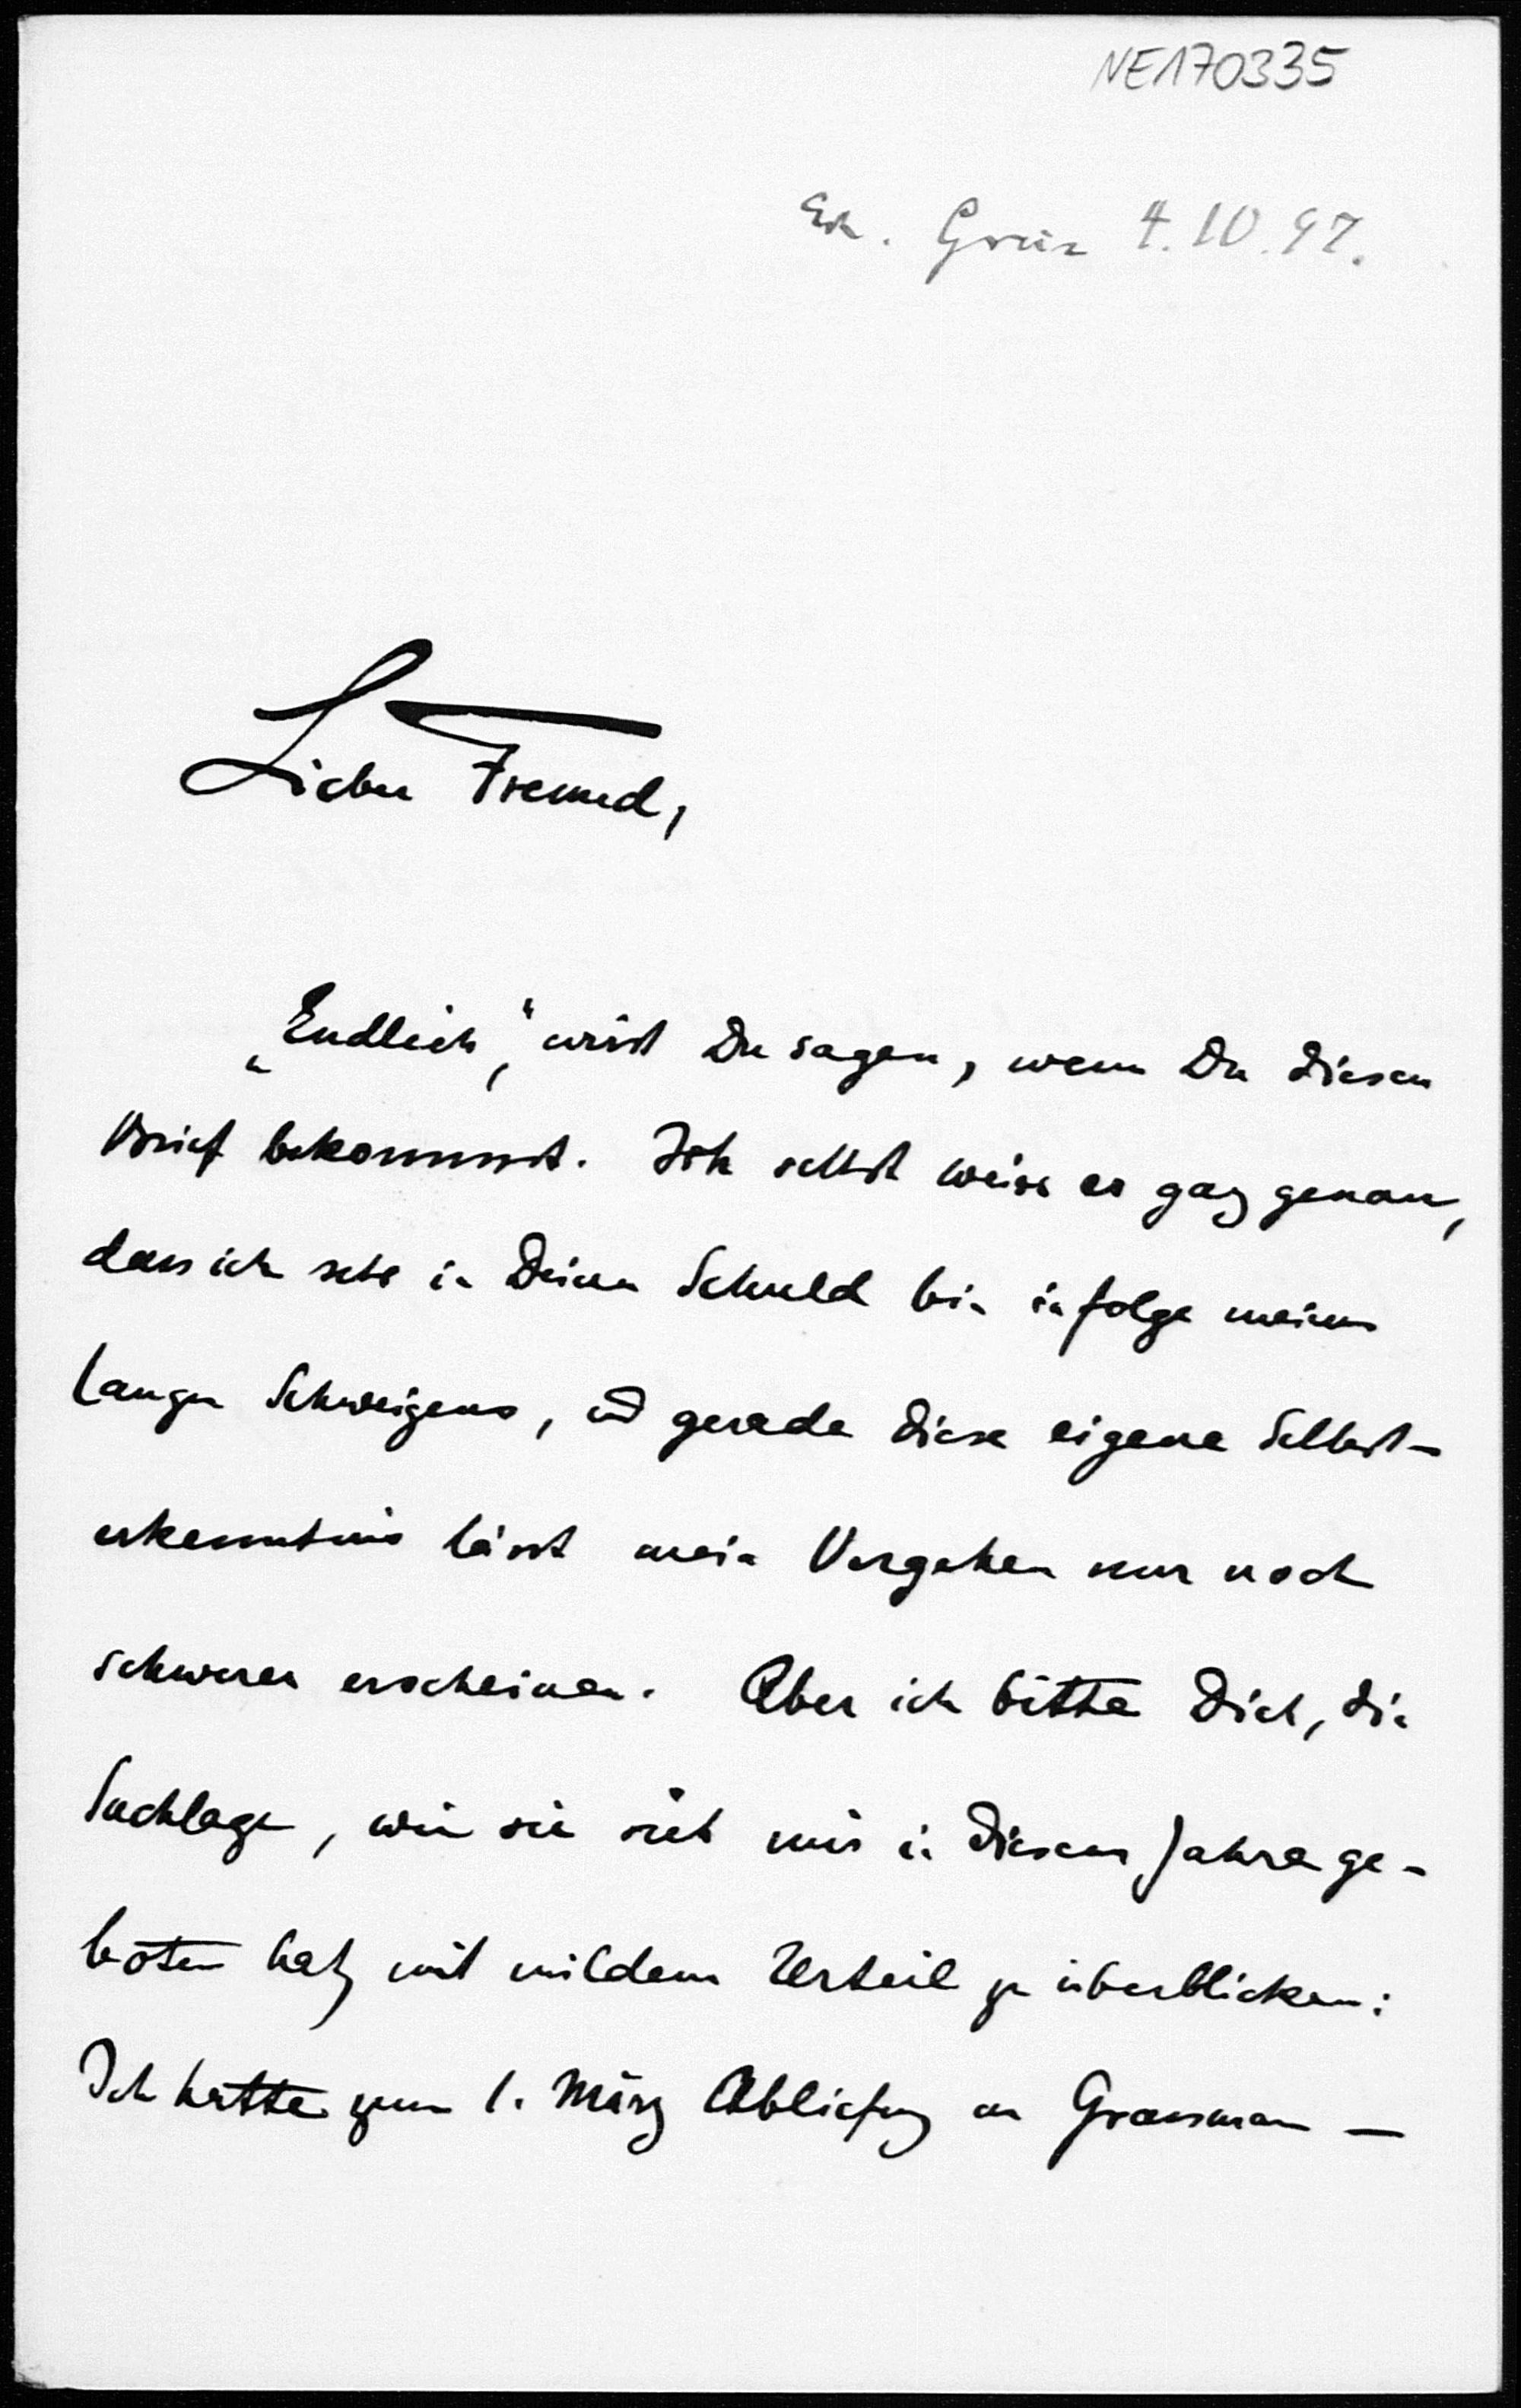 NE170335
Grün 4.10.97.
Lieber Freund,
„Endlich,“ wirst Du sagen, wenn Du diesen
Brief bekommst. Ich selbst weiss es ganz genau,
dass ich sehr in Deiner Schuld bin infolge meines
langen Schweigens, und gerade diese eigene Selbst-
erkenntnis lässt mein Vergehen nur noch
schwerer erscheinen. Aber ich bitte Dich, die
Sachlage, wie sie sich mir in diesem Jahre ge-
boten hat, mit mildem Urteil zu überblicken:
Ich hatte zum 1. März Ablieferung an Grossmann —